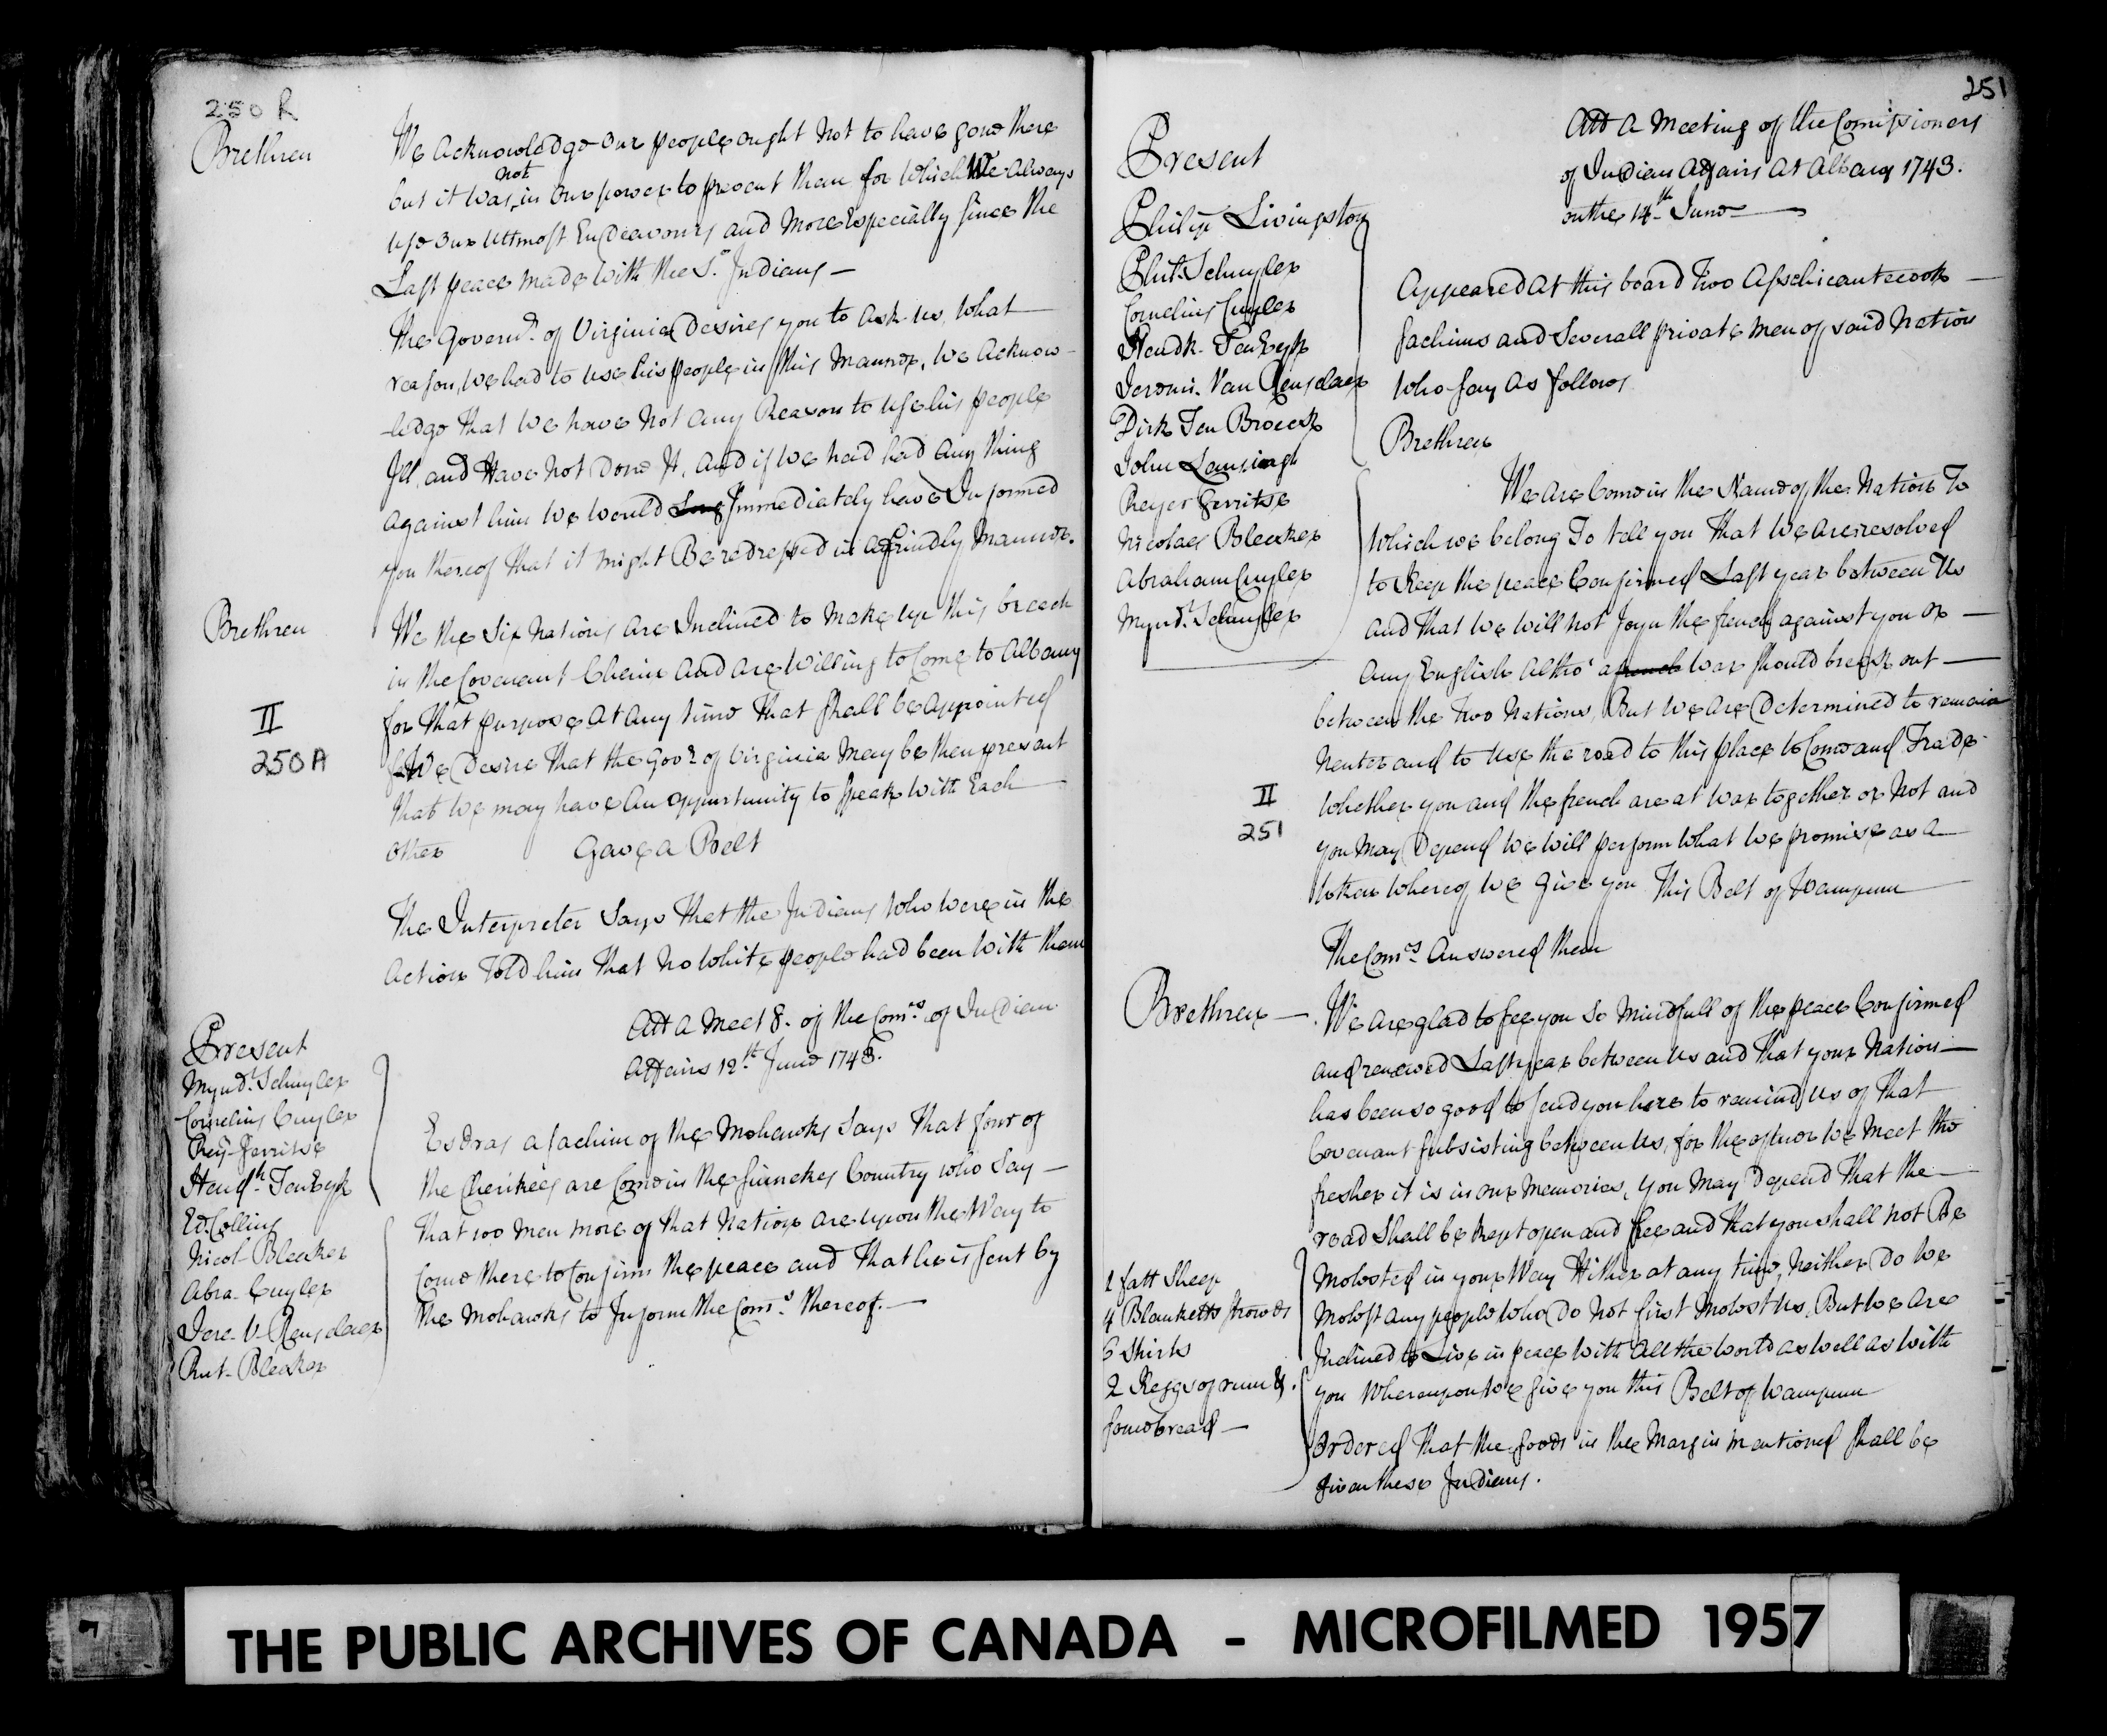 250 R
Brethren
We Acknowledge our people ought Not to have gone there
but it was not in our power to prevent them for which We Always
use our uttmost Endeavours and More Especially since the
Last peace made with the Sn Indians —
The Governr. of Virginia Desires you to Ask us, What
reason, We had to Use his people in this Manner, We Acknow-
-ledge that We have Not any Reason to Use his people
Ill, and Have Not Done It, And if We had had Any thing
against him We Would Long Immediately have Informed
you thereof that it might Be redressed in a friendly Manner.
Brethren
We the Six Nations Are Inclined to Make up this breech
in the Covenant Chain And Are Willing to Come to Albany
for That purpose At Any time That shall be Appointed
II
250A
& We Desire That the Govr. of Virginia May be then present
that We may have An Oppurtunity to Speak With Each
Other Gave a Belt
The Interpreter Says That the Indians Who Were in the
Action Told him That No White people had been With them
Att A Meetg. of the Comrs. of Indian
Affairs 12th. June 1743.
Present
Mynd. Schuyler
Cornelius Cuyler
Rey. Gerritse
Hendk. Ten Eyck
Ed. Collins
Nicol. Bleeker
Abra. Cuyler
Jere. V. Renselaer
Rut. Bleeker
Esdras a sachim of the Mohawks Says That four of
the Cherikees are Come in the Sinnekes Country who Say —
That 100 Men more of that Nation are upon the Way to
Come there to Confirm the peace and That he is sent by
the Mohawks to Inform the Comrs. thereof. —
251
Att A Meeting of the Comissioners
of Indian Affairs At Albany 1743.
on the 14th. June
Present
Philip Livingston
Phil. Schuyler
Cornelius Cuyler
Hendk. Ten Eyck
Jeremi. Van Renselaer
Dirk Ten Broeck
John Lansingh
Reyer Gerritse
Nicolaes Bleeker
Abraham Cuyler
Mynd. Schuyler
Appeared At this board Two Asschicantecook —
sachims and Severall private Men of said Nation
Who say As follows
Brethren
We Are Come in the Name of the Nation To
Which we belong To tell you That We Are resolved
to Keep the peace Confirmed Last year between Us
And That We Will not Joyn the french against you or —
Any English Altho' a french War should break out —
between the Two Nations, But We Are Determined to remain
Neuter and to Use the road to this place to Come and Trade
II
251
Whether you and the french are at War together or Not and
you May Depend We Will perform What We promise as a
token whereof We Give you This Belt of Wampum
The Comrs. Answered them
Brethren —
We Are glad to see you So Mindfull of the peace Confirmed
and renewed Last year between Us and That your Nation —
has been so good to send you here to remind Us of That
Covenant subsisting between Us, for the oftner We Meet the
fresher it is in our Memories, You May Depend That the —
road Shall be kept open and free and That you shall not Be
Molested in your Way Hither at any time, Neither Do We
Molest Any people Who Do Not first Molest Us, But We Are
Inclined to Live in peace With All the World as well As With
you Whereupon We Give you this Belt of Wampum
Ordered That the Goods in the Margin Mentioned shall be
given these Indians.
1 fatt Sheep
4 Blanketts strowds
6 Shirts
2 Keggs of rum &
some bread —
THE PUBLIC ARCHIVES OF CANADA - MICROFILMED 1957